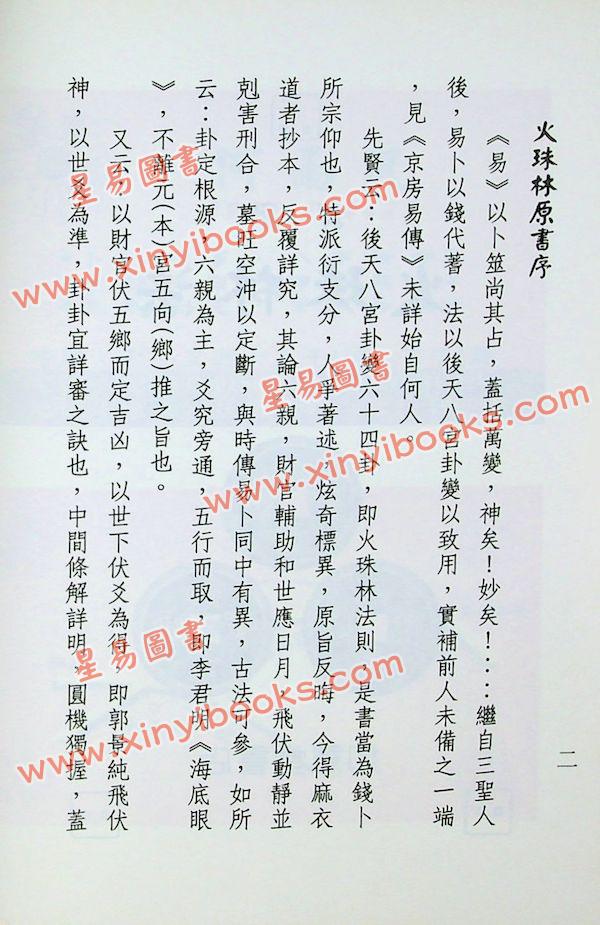 火珠林原書序
《易》以卜筮尚其占，蓋括萬變，神矣！妙矣！：：繼自三聖人
後，易卜以錢代蓍，法以後天八宮卦變以致用，實補前人未備之一端
，見《京房易傳》未詳始自何人。
先賢云：：後天八宮卦變六十四卦，即火珠林法則，是書當為錢卜
所宗仰也，特派衍支分，人爭著述，炫奇標異，原旨反晦，今得麻衣
道者抄本，反覆詳究，其論六親，財官輔助和世應日月，飛伏動靜並
剋害刑合，墓旺空沖以定斷，與時傳易卜同中有異，古法可參，如所
云：卦定根源，六親為主，爻究旁通，五行而取，即李君明《海底眼
》，不離元(本)宮五向(鄉)推之旨也。
又云：以財官伏五鄉而定吉凶，以世下伏爻為得，即郭景純飛伏
神，以世爻為準，卦卦宜詳審之訣也，中間條解詳明，圓機獨握，蓋
二
星易圖書
www.xinyibooks.com
星易圖書
www.xinyibooks.com
星易圖書
www.xinyibooks.com